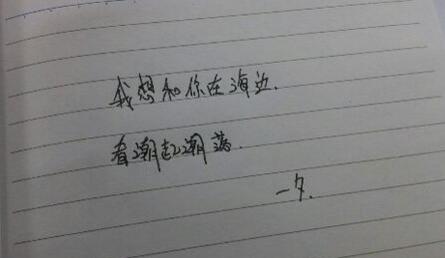 我想和你在海边.
看潮起潮落.
一夕.